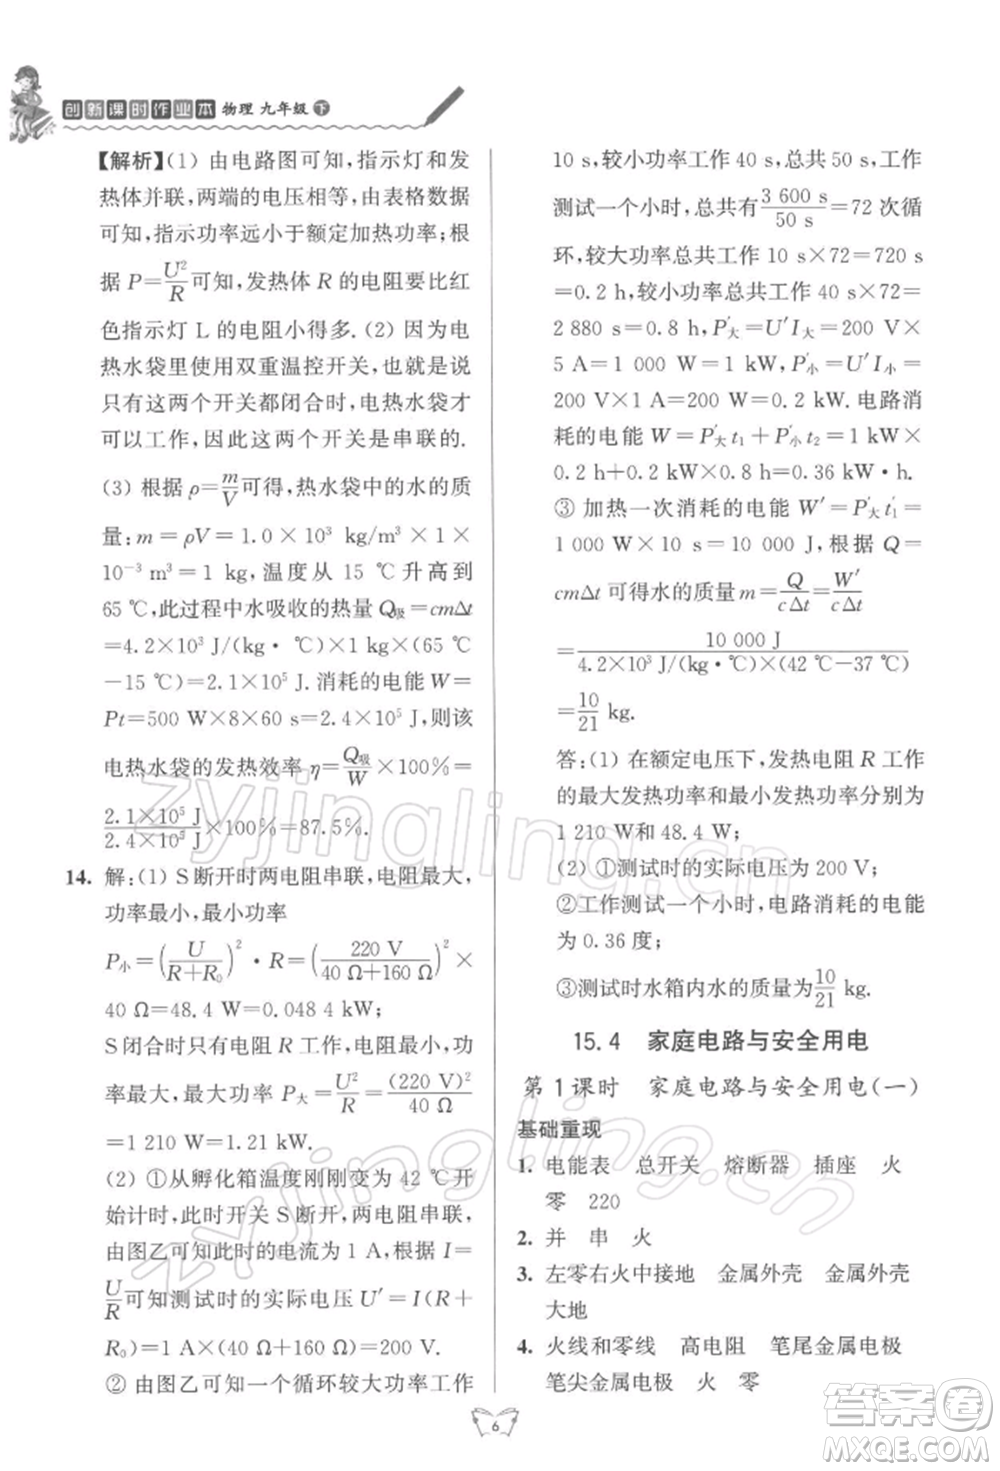 创新课时作业本 物理 九年级 下
【解析】(1) 由电路图可知,指示灯和发
热体并联,两端的电压相等,由表格数据
可知,指示功率远小于额定加热功率;根
据 P=U²/R可知,发热体 R 的电阻要比红
色指示灯 L 的电阻小得多. (2) 因为电
热水袋里使用双重温控开关,也就是说
只有这两个开关都闭合时,电热水袋才
可以工作,因此这两个开关是串联的.
(3) 根据 ρ=m/V可得,热水袋中的水的质
量: m = ρV = 1.0 × 10³ kg/m³ × 1 ×
10⁻³ m³ = 1 kg,温度从 15 ℃升高到
65 ℃,此过程中水吸收的热量 Q吸=cmΔt
=4.2×10³ J/(kg·℃)×1 kg×(65 ℃
-15 ℃)=2.1×10⁵ J. 消耗的电能 W=
Pt=500 W×8×60 s=2.4×10⁵ J,则该
电热水袋的发热效率 η=Q吸/W×100%=
2.1×10⁵ J/2.4×10⁵ J×100%=87.5%.
14. 解:(1) S断开时两电阻串联,电阻最大,
功率最小,最小功率
P小=(U/(R+R₀))²·R=(220 V/(40 Ω+160 Ω))²×
40 Ω=48.4 W=0.048 4 kW;
S闭合时只有电阻 R 工作,此时电阻最
小,功率最大, P大=U²/R=(220 V)²/40 Ω
=1 210 W=1.21 kW.
(2) ①从孵化箱温度刚刚变为 42 ℃开
始计时,此时开关 S断开,两电阻串联,
由图乙可知此时的电流为 1 A,根据 I=
U/R可知测试时的实际电压 U′=I(R+
R₀)=1 A×(40 Ω+160 Ω)=200 V.
② 由图乙可知一个循环较大功率工作
10 s,较小功率工作 40 s,总共 50 s,工作
测试一个小时,总共有3 600 s/50 s=72 次循
环,较大功率总共工作 10 s×72=720 s
=0.2 h,较小功率总共工作 40 s×72=
2 880 s=0.8 h; P′大=U′I大=200 V×
5 A=1 000 W=1 kW, P′小=U′I小=
200 V×1 A=200 W=0.2 kW. 电路消
耗的电能 W=P′大t₁+P′小t₂=1 kW×
0.2 h+0.2 kW×0.8 h=0.36 kW·h.
③ 加热一次消耗的电能 W′=P′大t′₁=
1 000 W×10 s=10 000 J,根据 Q=
cmΔt 可得水的质量 m=Q/cΔt=W′/cΔt
=10 000 J/4.2×10³ J/(kg·℃)×(42 ℃-37 ℃)
=10/21 kg.
答:(1) 在额定电压下,发热电阻 R 工作
的最大发热功率和最小发热功率分别为
1 210 W和 48.4 W;
(2) ①测试时的实际电压为 200 V;
②工作测试一个小时,电路消耗的电能
为 0.36 度;
③测试时水箱内水的质量为10/21 kg.
15.4 家庭电路与安全用电
第 1 课时 家庭电路与安全用电(一)
基础重现
1. 电能表 总开关 熔断器 插座 火
零 220
2. 并 串 火
3. 左零右火中接地 金属外壳 金属外壳
大地
4. 火线和零线 高电阻 笔尾金属电极
笔尖金属电极 火 零
6
zyjingling.cn
zyjingling.cn
答案圈
MXQE.COM